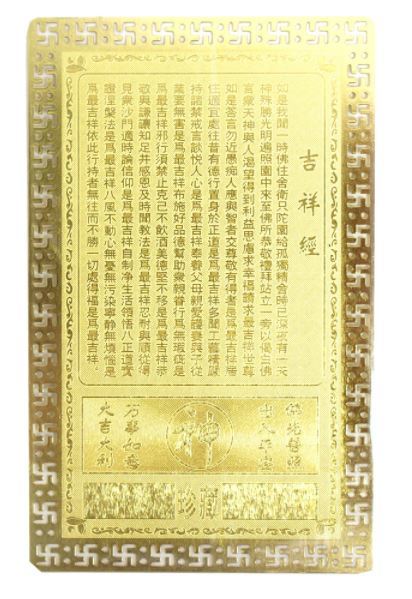 吉祥經
如是我聞一時佛住舍衛只陀園給孤獨精舍時已深夜有一天
神殊勝光明遍照園中來至佛所恭敬禮拜站立一旁以偈白佛
言衆天神與人渴望得到利益思慮求幸福請求最吉祥世尊
如是答言勿近愚痴人應與智者交尊敬有得者是爲最吉祥居
住適宜處往昔有德行置身於正道是爲最吉祥多聞工藝精嚴
持諸禁戒言談悅人心是爲最吉祥奉養父母親愛護妻與子從
業要無害是爲最吉祥布施好品德幫助衆親眷行爲無瑕疵是
爲最吉祥邪行須禁止克己不飲酒美德堅不移是爲最吉祥恭
敬與謙讓知足并感恩及時聞教法是爲最吉祥忍耐與順從得
見衆沙門適時論信仰是爲最吉祥自制净生活領悟八正道實
證涅槃法是爲最吉祥八風不動心無憂無污染寧静無煩惱是
爲最吉祥依此行持者無往而不勝一切處得福是爲最吉祥.
佛光普照
出入平安
神
万事如意
大吉大利
珍藏